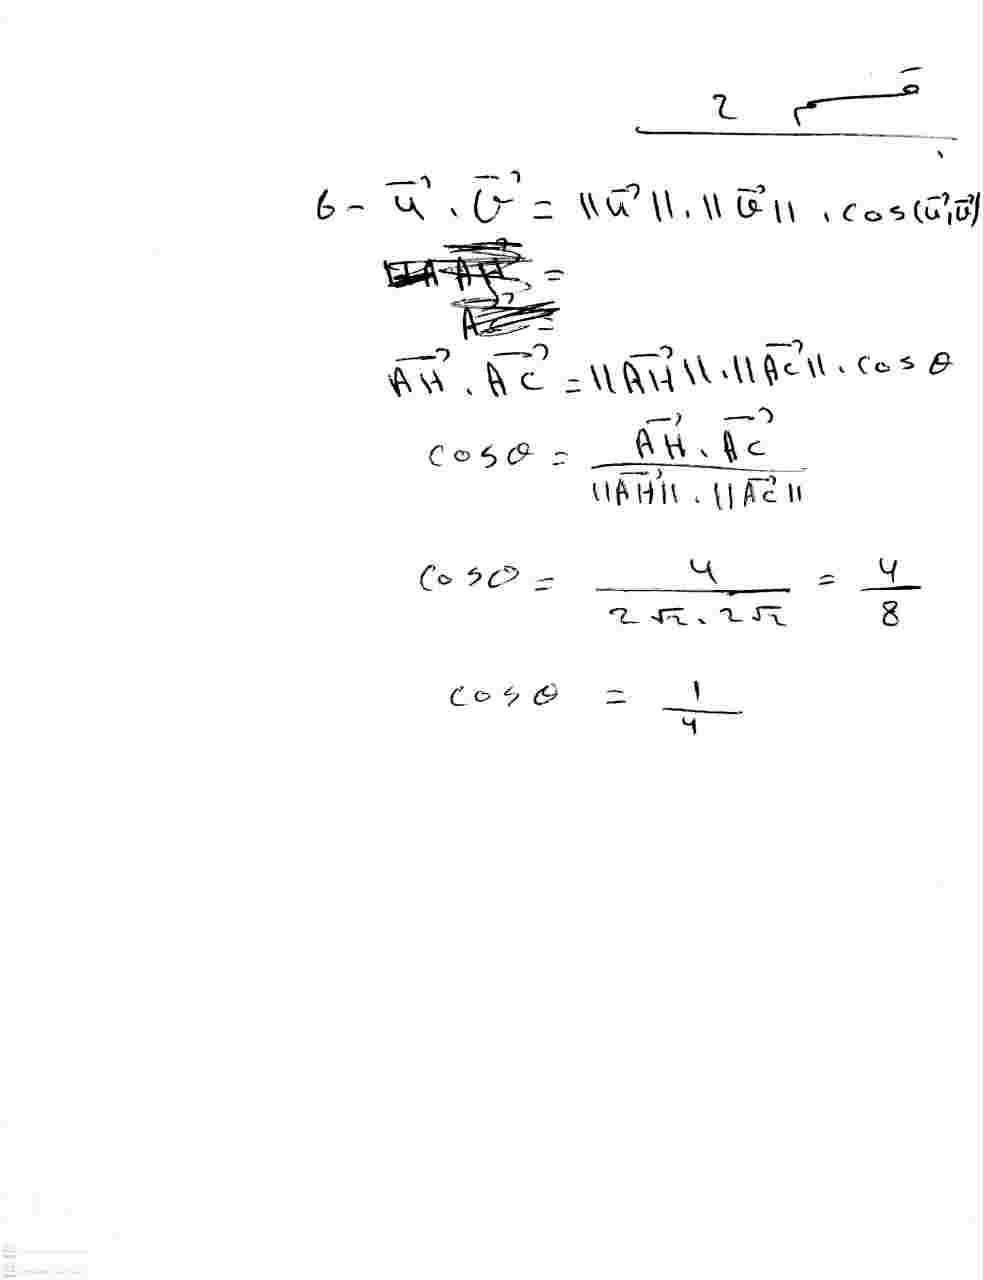 قسم 2
6 - u⃗ . v⃗ = ||u⃗|| . ||v⃗|| . cos(u⃗, v⃗)
AH⃗ . AC⃗ = ||AH⃗|| . ||AC⃗|| . cos θ
cos θ = AH⃗ . AC⃗ / ||AH⃗|| . ||AC⃗||
cos θ = 4 / 2√2 . 2√2 = 4 / 8
cos θ = 1 / 4